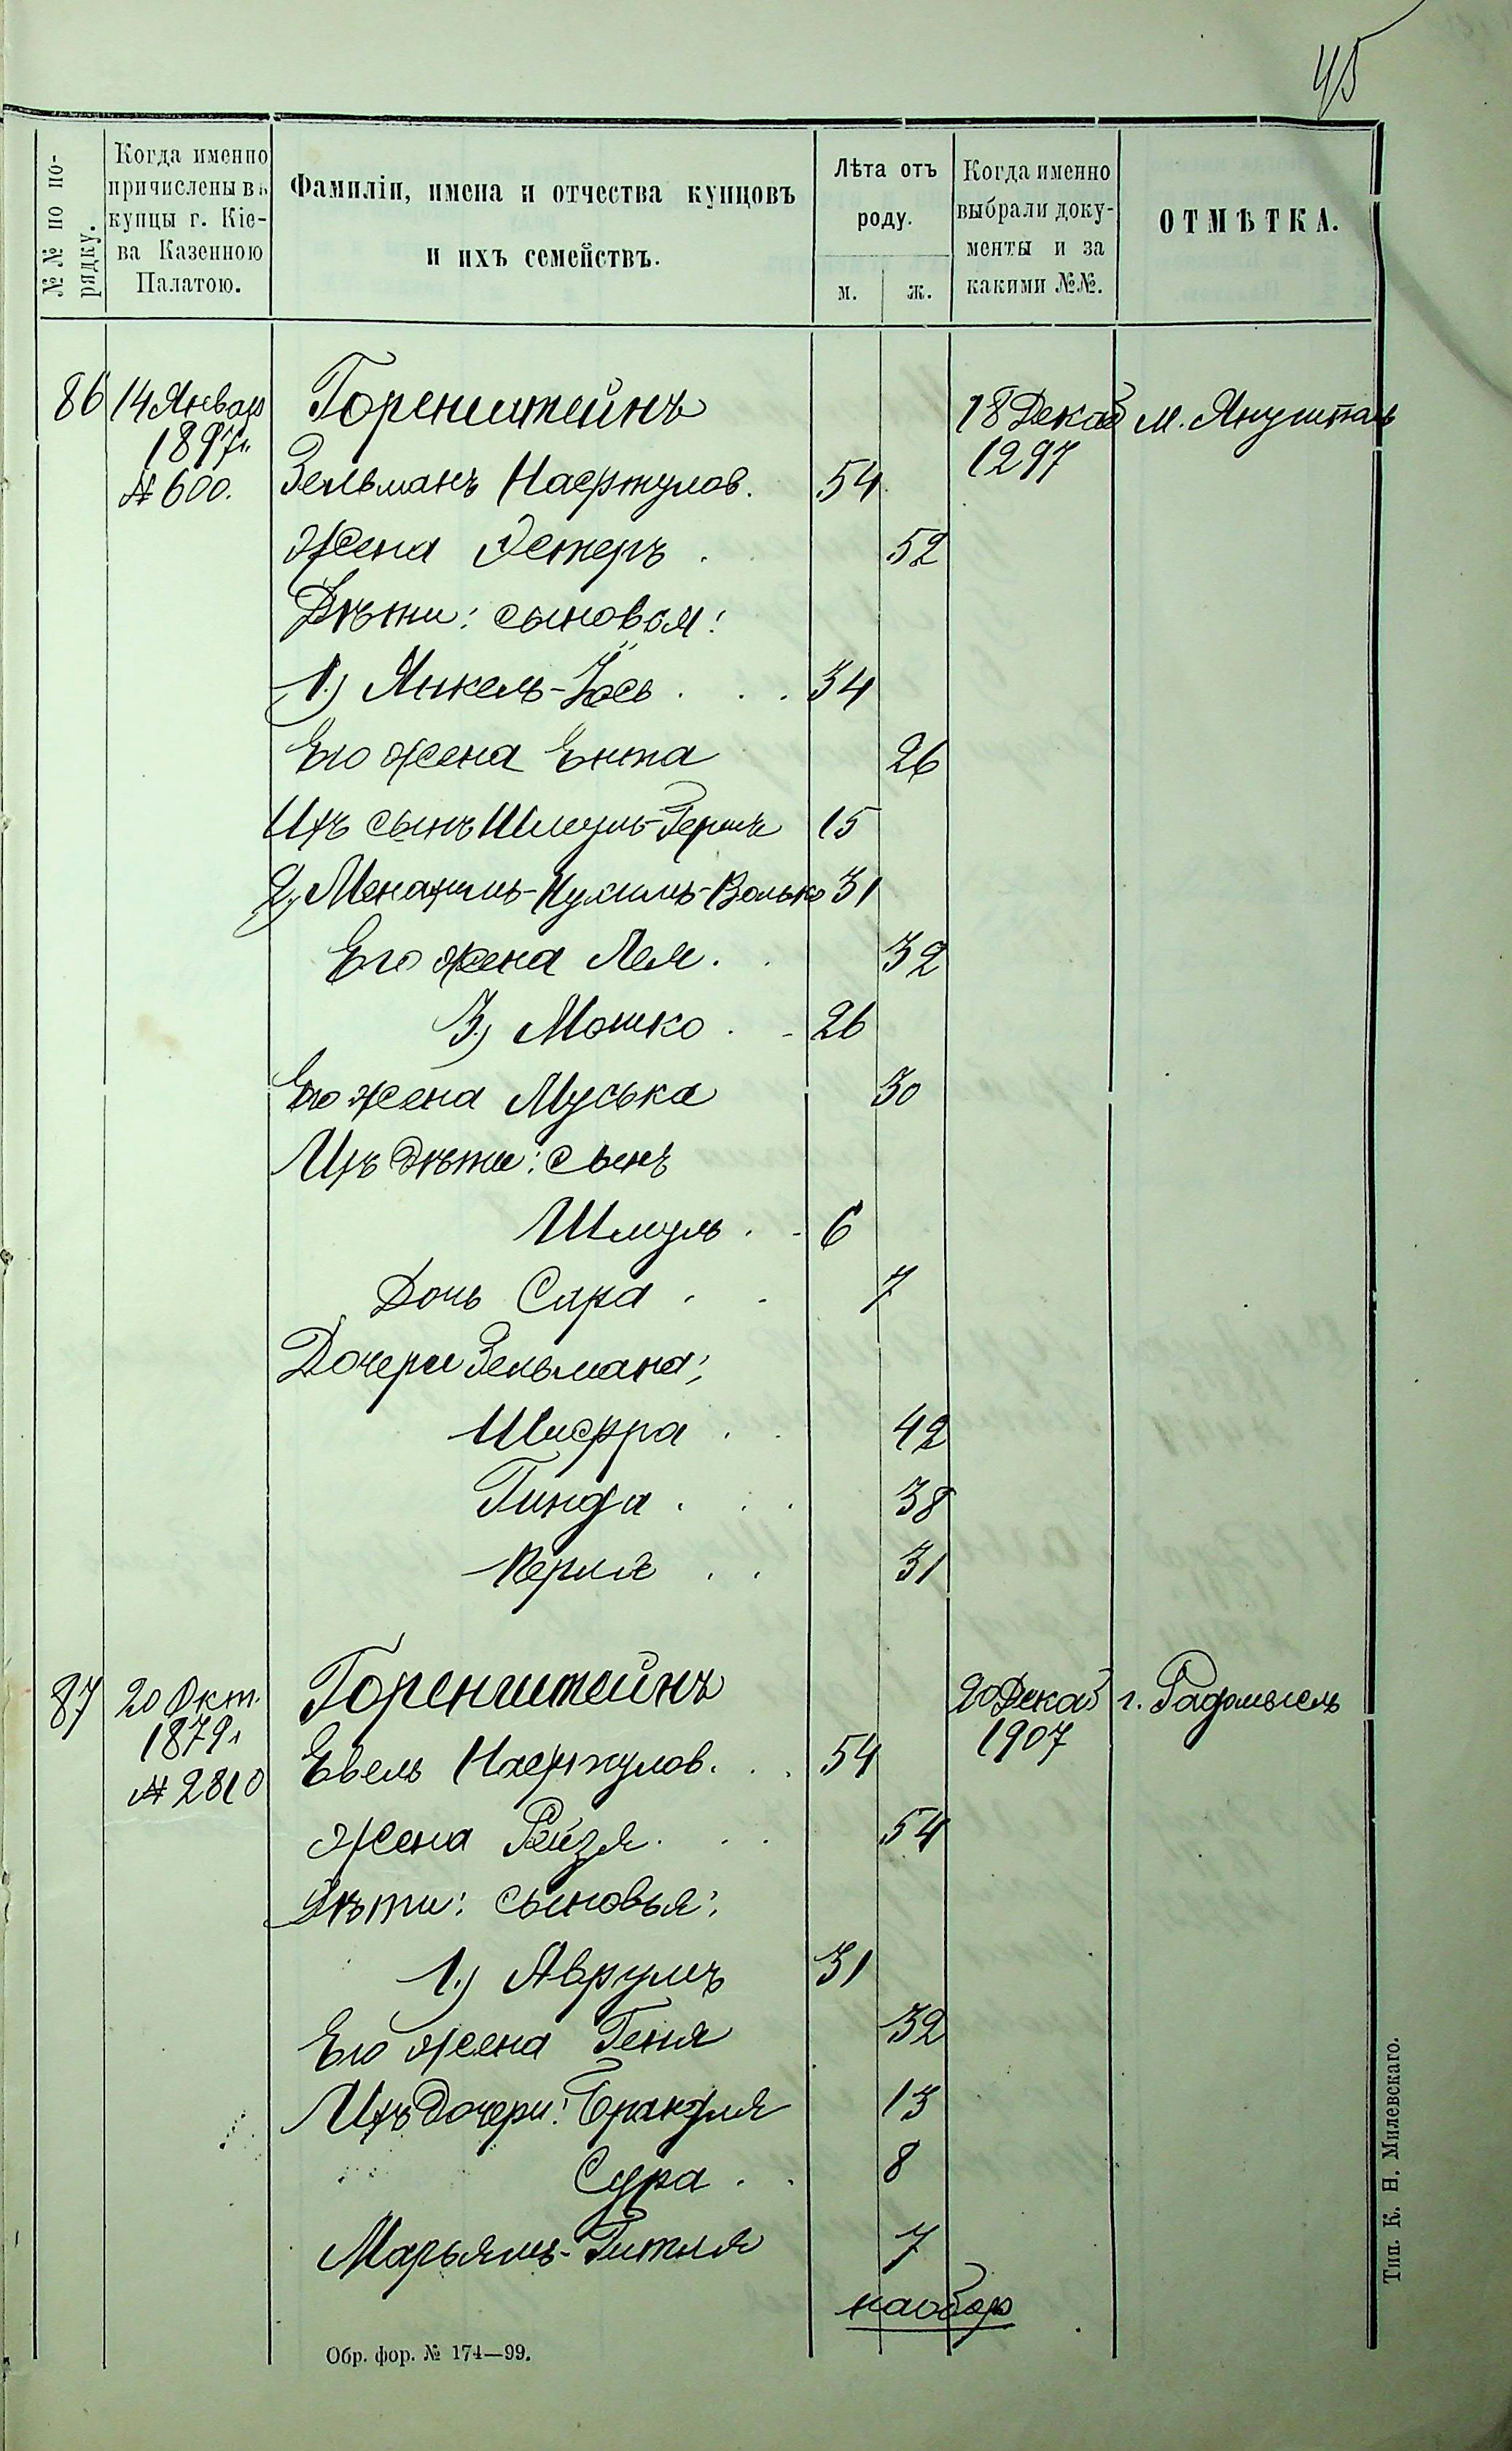 45
№№ по по-
рядку.
Когда именно
причислены въ
купцы г. Кіе-
ва Казенною
Палатою.
Фамиліи, имена и отчества купцовъ
и ихъ семействъ.
Лѣта отъ
роду.
м. ж.
Когда именно
выбрали доку-
менты и за
какими №№.
ОТМѢТКА.
86 14 Январ Горенштейнъ 18 Декаб м. Янушполь
1897г. 1297
№ 600. Зельманъ Нафтулов. 54
Жена Эстеръ . 52
Дѣти: сыновья:
1.) Янкель-Іось . . . 34
Его жена Ента 26
Ихъ сынъ Шмуль-Гершъ 15
2.) Менахимъ-Нухимъ-Волько 31
Его жена Лея . . 32
3.) Мошко . . 26
Его жена Муська 30
Ихъ дѣти: сынъ
Шмуль . . 6
Дочь Сара . . 7
Дочери Зельмана:
Шифра . . 42
Гинда . . . 38
Перля . . 31
87 20 Окт. Горенштейнъ 20 Декаб г. Радомысль
1879г 1907
№ 2810 Евель Нафтулов. . . 54
Жена Рейзя . . . 54
Дѣти: сыновья:
1.) Аврумъ 31
Его жена Геня 32
Ихъ дочери: Брандля 13
Сура . . 8
Марьямъ-Гитля 7
наобор
Обр. фор. № 174—99.
Тип. К. Н. Милевскаго.